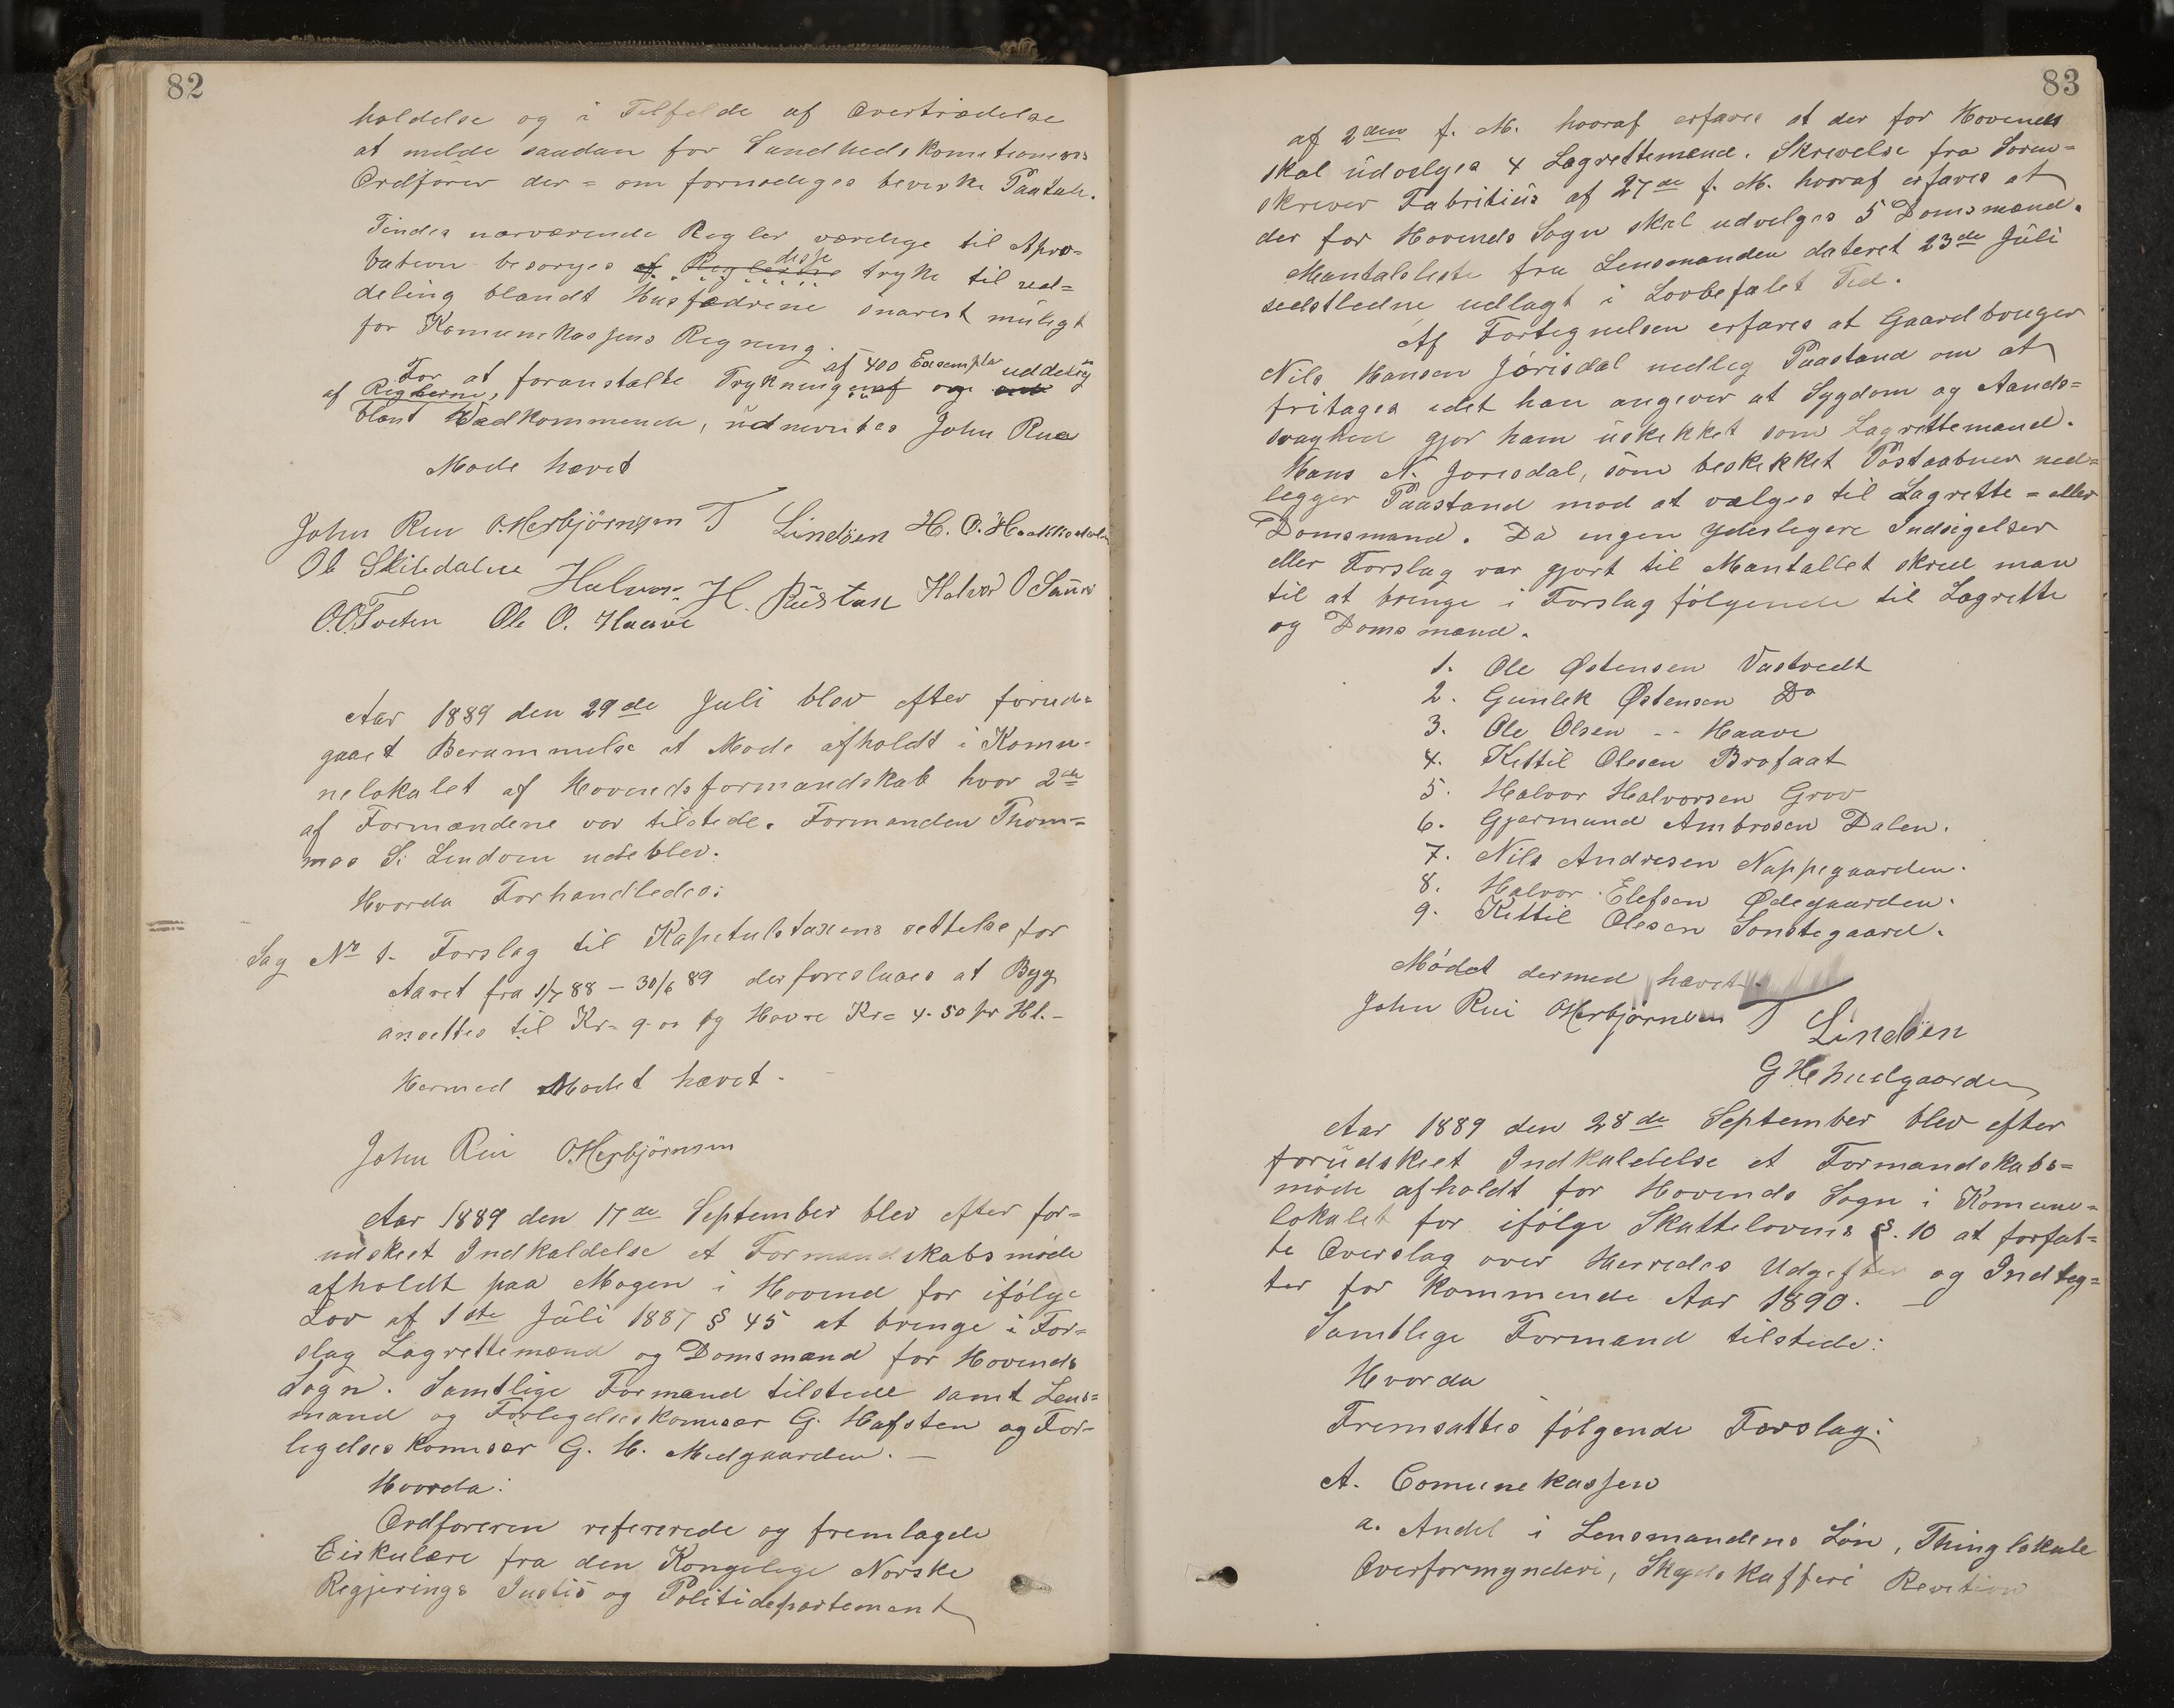 82
holdelse og i Tilfelde af Overtrædelse
at melde saadan for Sundhedskomitionens
Ordfører der = om fornødeges bevirke Paatale.
Findes nærværende Regler værdige til Apro=
bation besørges af Reglerne disse trykke til ud=
deling blandt Husfædrene snarest muligt
for Komunekassens Regning.
For at foranstalte Trykningen af 400 Exsemplar uddeling
af Reglerne, og
blant Vedkommende, udnevntes John Rue
Møde hævet
John Rui O. Herbjörnsen T Lindöen H. O.
Ole Skibdalen Halvor H. Rüstan Halvor O
O.O.Tveten Ole O. Haave
Aar 1889 den 29de Juli blev efter forud=
gaaet Berammelse et Møde afholdt i Komu=
nelokalet af Hovinds formandskab hvor 2de
af Formændene var tilstede. Formanden Thom=
mas S. Lindøen udeblev.
Hvorda Forhandledes:
Sag No 1. Forslag til Kapetulstaxens settelse for
Aaret fra 1/7 88 – 30/6 89 der foreslaaes at Byg
ansettes til Kr= 9.00 og Havre Kr= 4.50 pr Hl.–
Hermed Mødet hævet.
John Rui O. Herbjörnsen
Aar 1889 den 17de September blev efter for=
udskeet Indkaldelse et Formandskabsmøde
afholdt paa Mogen i Hovind for ifølge
Lov af 1ste Juli 1887 § 45 at bringe i For=
slag Lagrettemænd og Domsmænd for Hovinds
Sogn. Samtlige Formænd tilstede samt Lens=
mand og Forlegelseskomisær G. Hafsten og For=
ligelseskomisær G. H. Midgaarden. –
Hvorda:
Ordføreren refererede og fremlagde
Cirkulære fra den Kongelige Norske
Regjerings Justis og Politidepartement
83
af 2den f. M. hvoraf erfares at der for Hovinds
skal udvelges 4 Lagrettemænd. Skrivelse fra Soren=
skriver Fabritius af 27de f. M. hvoraf erfares at
der for Hovinds Sogn skal udvelges 5 Domsmænd.
Mantalsliste fra Lensmanden dateret 23de Juli
sidstledne udlagt i Lovbefalet Tid.
Af Fortegnelsen erfares at Gaardbruger
Nils Hansen Jörisdal nedleg Paastand om at
fritages idet han angever at Sygdom og Aands=
svaghed gjør ham uskikket som Lagrettemand.
Hans N. Jorisdal, som beskikket Postaabner ned=
legger Paastand mod at vælges til Lagrette = eller
Domsmand. Da ingen yderlegere Indsigelser
eller Forslag var gjort til Mantallet skred man
til at bringe i Forslag følgende til Lagrette
og Domsmænd.
1. Ole Østensen Vastvedt
2. Gunlek Østensen Do
3. Ole Olsen -- Haave
4. Kittil Olesen Brofaat
5. Halvor Halvorsen Grov
6. Gjermund Ambrosen Dalen.
7. Nils Andresen Nappegaarden.
8. Halvor Elefsen Ødegaarden.
9. Kittil Olesen Sønstegaard.
Mødet dermed hævet.
John Rui O Herbjørnsen T Lindöen
G H Midgaarden
Aar 1889 den 28de September blev efter
forudskeet Indkaldelse et Formandskabs=
møde afholdt for Hovinds Sogn i Komune=
lokalet for ifølge Skattelovens §. 10 at forfat=
te Overslag over Herredes Udgifter og Indteg=
ter for kommende Aar 1890. –
Samtlege Formænd tilstede:
Hvorda
Fremsattes følgende Forslag:
A. Comunekassen
a. Andel i Lensmandens Løn, Thinglokale
Overformynderi, Skydskafferi Revition